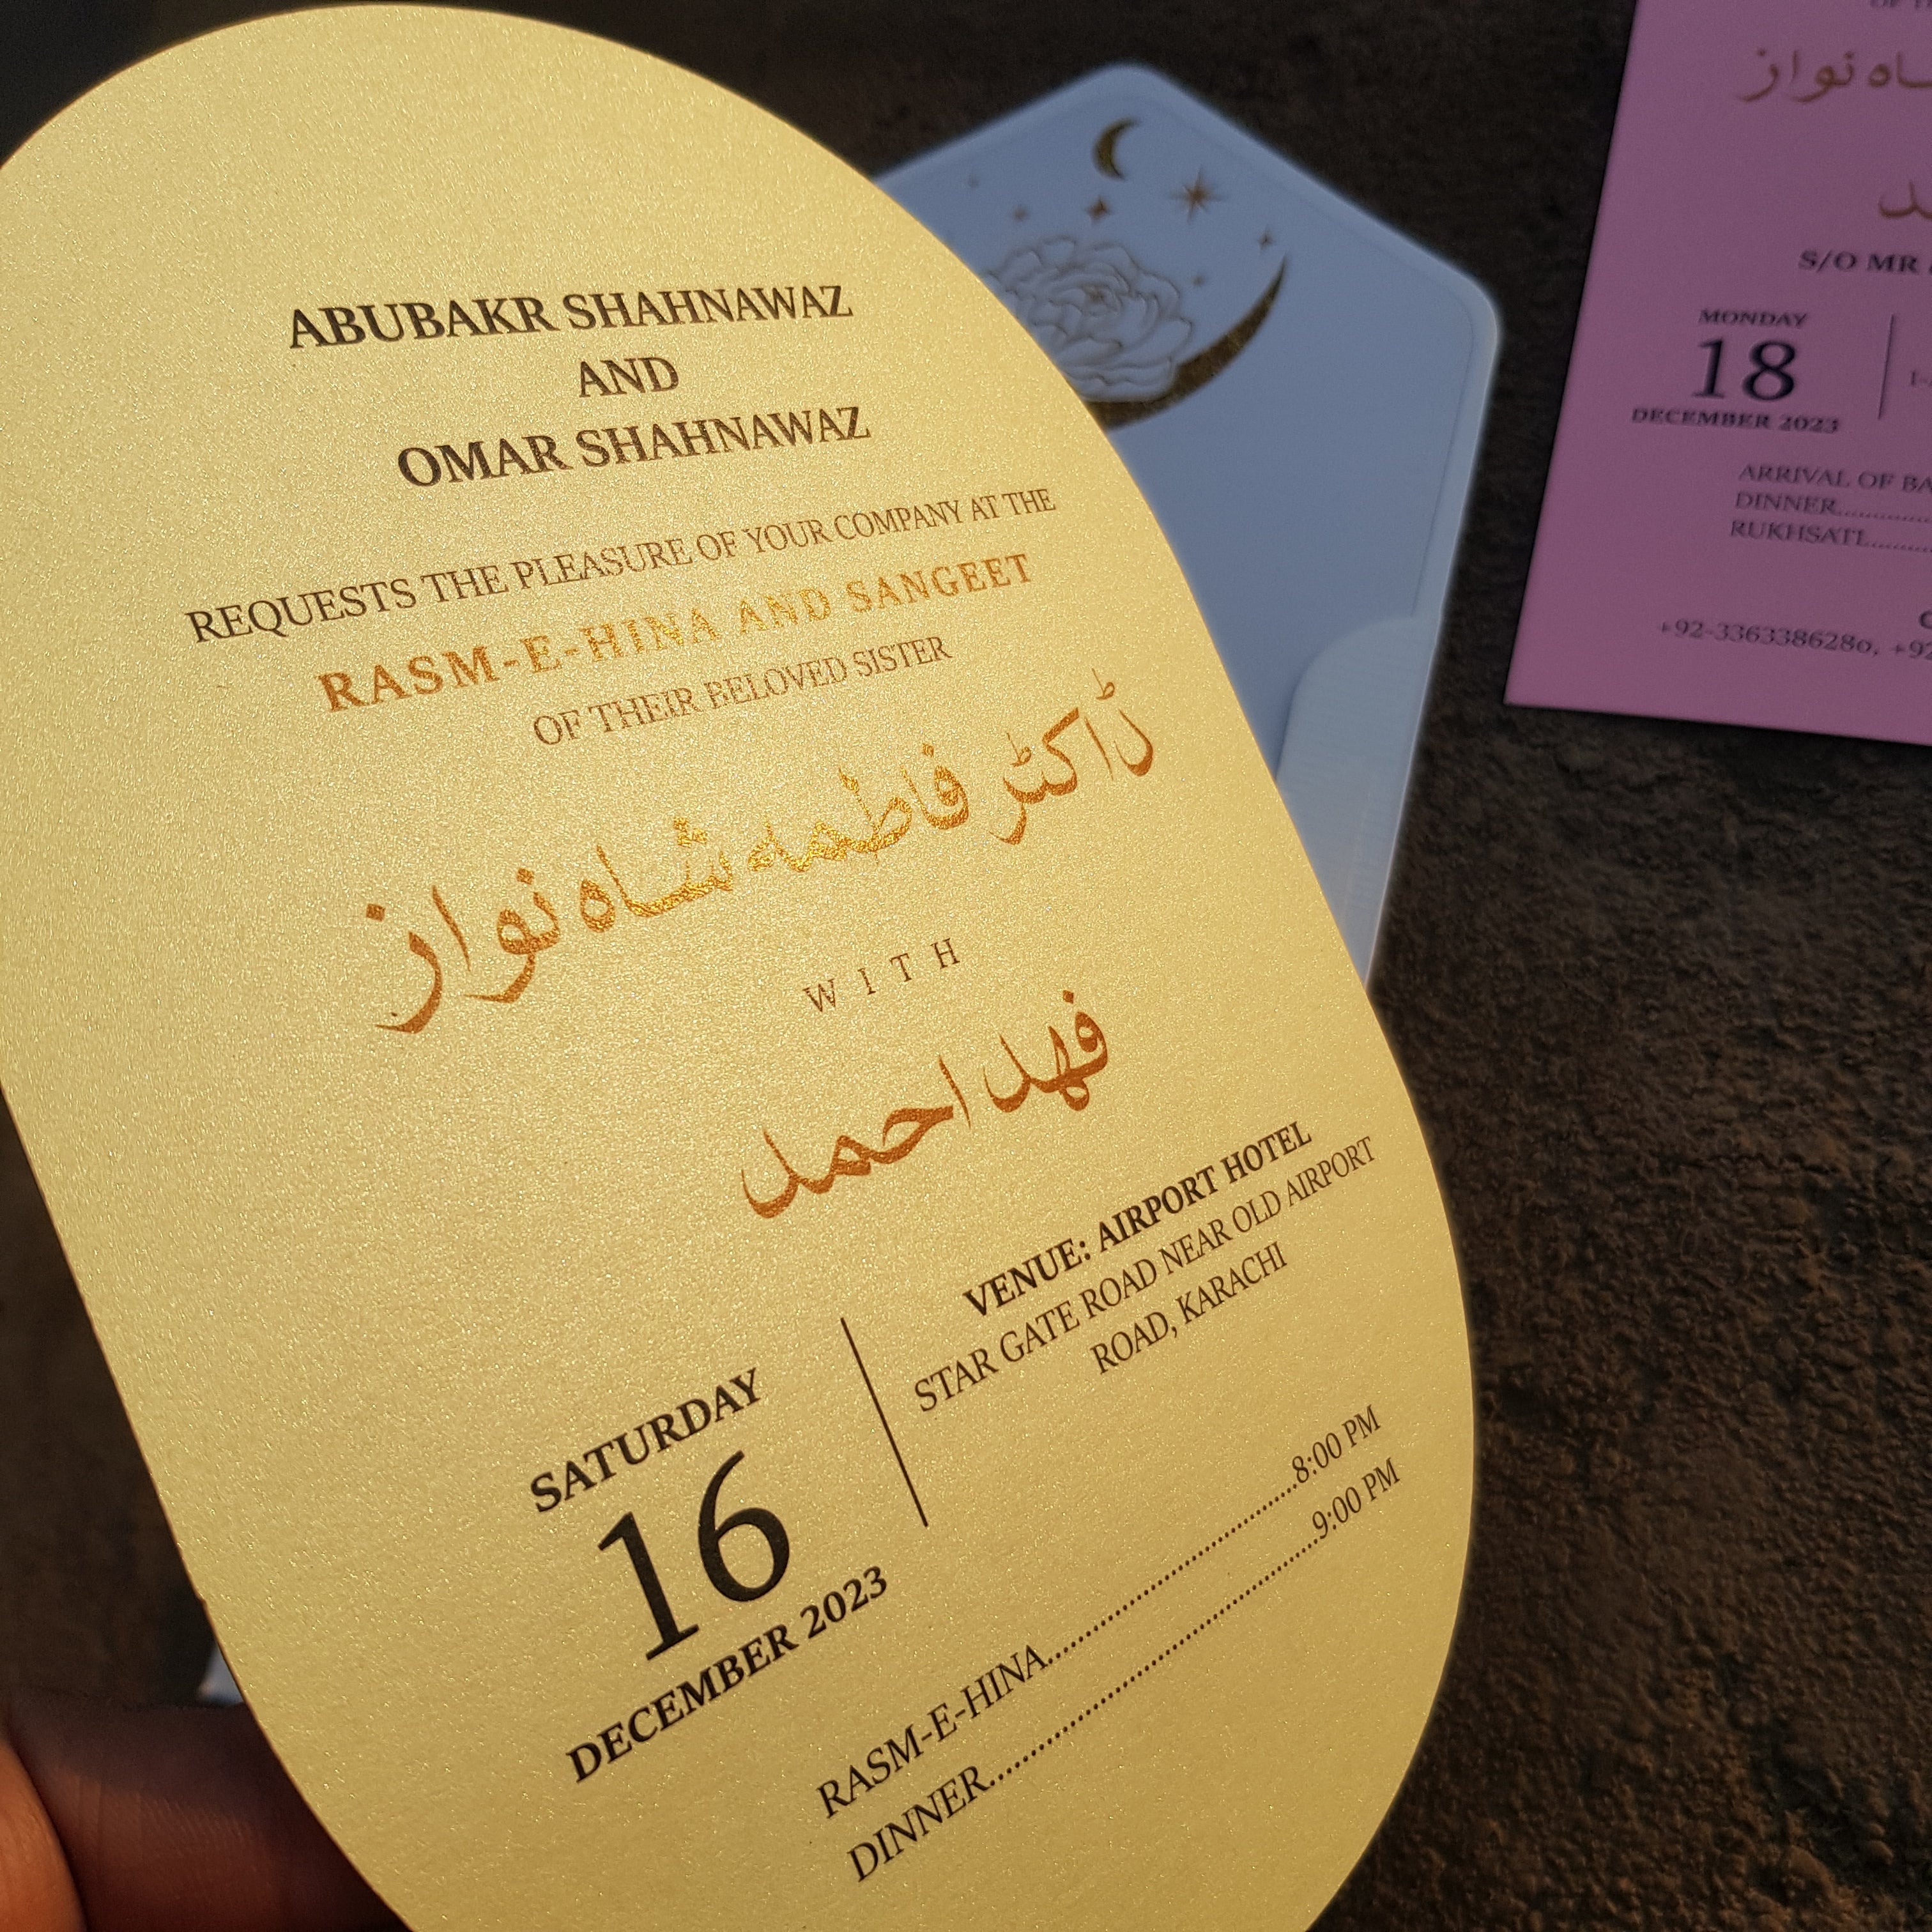 ABUBAKR SHAHNAWAZ
AND
OMAR SHAHNAWAZ
REQUESTS THE PLEASURE OF YOUR COMPANY AT THE
RASM-E-HINA AND SANGEET
OF THEIR BELOVED SISTER
ڈاکٹر فاطمہ شاہ نواز
WITH
فہد احمد
SATURDAY
16
DECEMBER 2023
VENUE: AIRPORT HOTEL
STAR GATE ROAD NEAR OLD AIRPORT
ROAD, KARACHI
RASM-E-HINA....................................8:00 PM
DINNER.................................................9:00 PM
نواز
S/O MR
MONDAY
18
DECEMBER 2023
ARRIVAL OF
DINNER............
RUKHSATI.......
+92-3363386280,